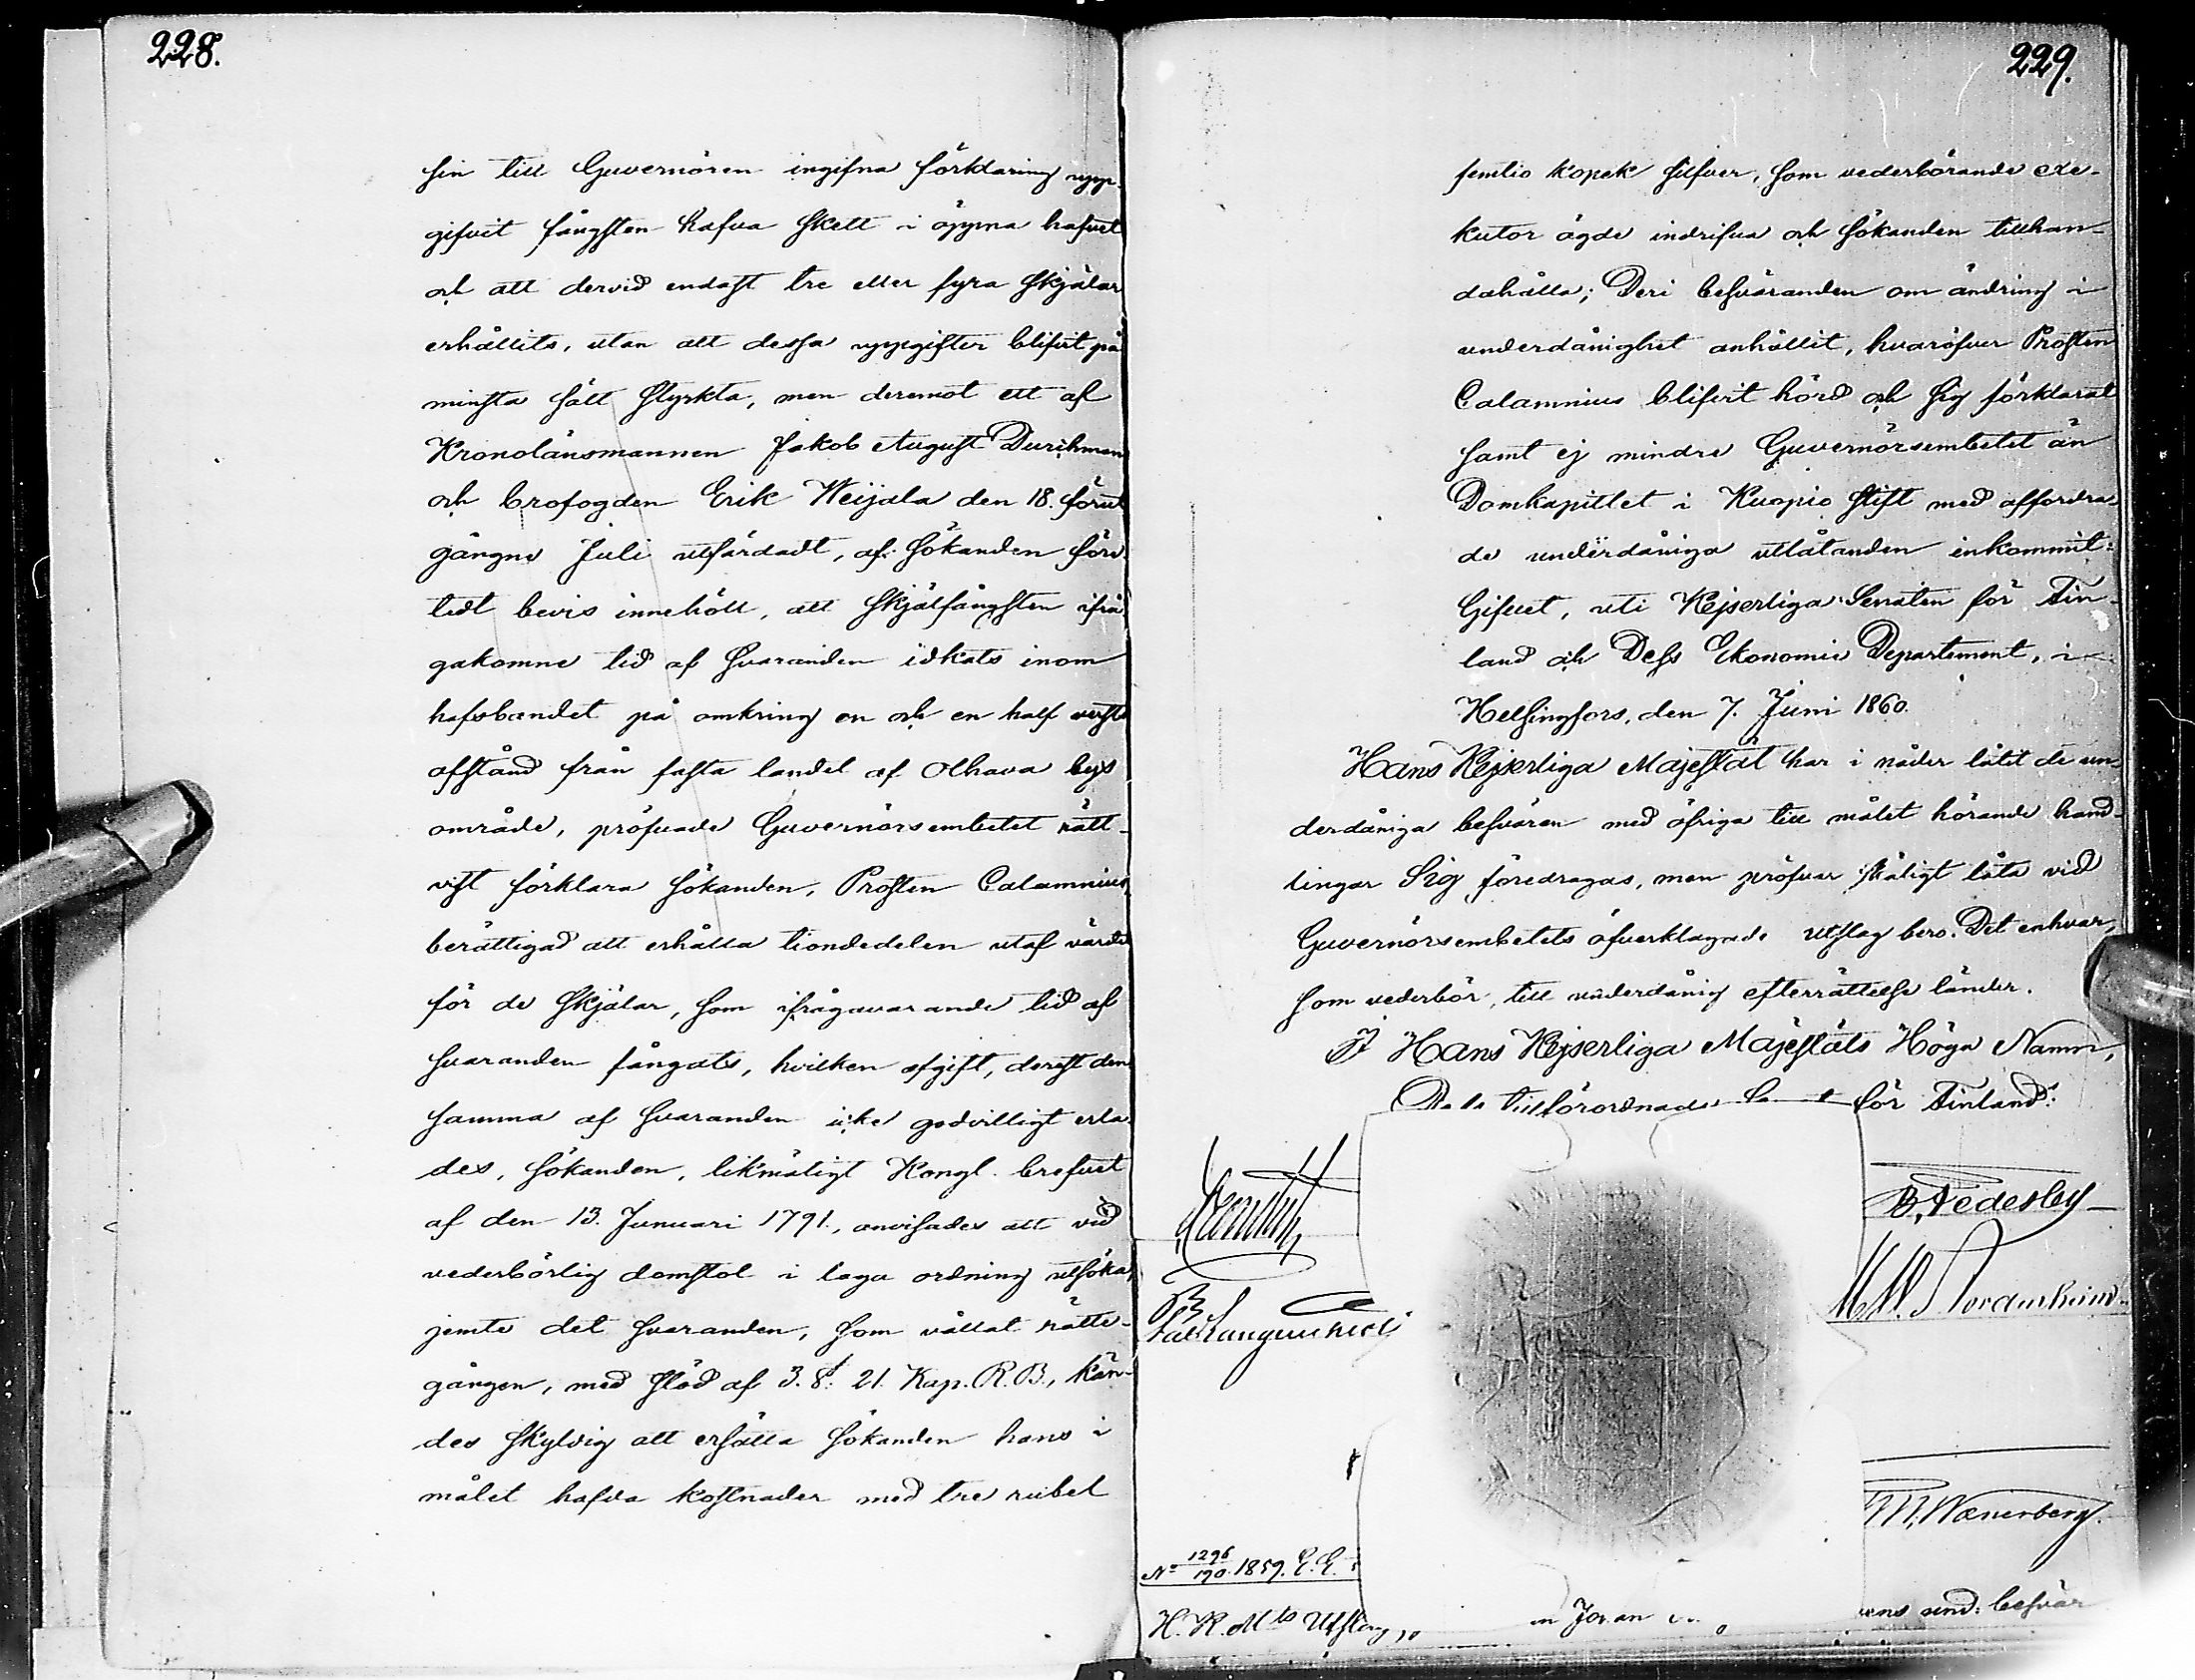 228.
sin till Guvernören ingifna förklaring upp-
gifvit fångsten hafva skett i öppna hafvet
och att dervid endast tre eller fyra skjälar
erhållits, utan att dessa uppgifter blifvit på
minsta sätt styrkta, men deremot ett af
Kronolänsmannen Jakob August Durchman
och brofogden Erik Weijola den 18. förut
gångne Juli utfärdadt, af sökanden före-
tedt bevis innehöll, att skjälfångsten ifrå-
gakomne tid af svaranden idkats inom
hafsbandet på omkring en och en half versts
afstånd från fasta landet af Olhava bys
område, pröfvade Guvernörsembetet rätt-
vist förklara sökanden, Prosten Calamnius,
berättigad att erhålla tiondedelen utaf värdet
för de skjälar, som ifrågavarande tid af
svaranden fångats, hvilken afgift, derest den
samma af svaranden icke godvilligt erla-
des, sökanden, likmätigt Kongl. brefvet
af den 13. Januari 1791., anvisades att vid
vederbörlig domstol i laga ordning utsöka,
jemte det svaranden, som vållat rätte-
gången, med stöd af 3. §. 21. Kap. R. B., kän-
des skyldig att ersätta sökanden hans i
målet hafda kostnader med tre rubel
229.
femtio kopek silfver, som vederbörande exe-
kutor ägde indrifva och sökanden tillhan-
dahålla; Deri besväranden om ändring i
underdånighet anhållit, hvaröfver Prosten
Calamnius blifvit hörd och sig förklarat
samt ej mindre Guvernörsembetet än
Domkapitlet i Kuopio stift med affordra-
de underdåniga utlåtanden inkommit:
Gifvet, uti Kejserliga Senaten för Fin-
land och Dess Ekonomie Departement, i
Helsingfors, den 7. Juni 1860.
Hans Kejserliga Majestät har i nåder låtit de un-
derdåniga besvären med öfriga till målet hörande hand-
lingar Sig föredragas, men pröfvar skäligt låta vid
Guvernörsembetets öfverklagade utslag bero. Det enhvar,
som vederbör, till underdånig efterrättelse länder.
I Hans Kejserliga Majestäts Höga Namn,
Dess tillförordnade för Finland:
B. Federley
M. W. Nordenheim
Fab: Langenskiöld
M. Wænerberg.
No 1296/190. 1859. E. E.
H. K. Mts Utslag, und: besvär